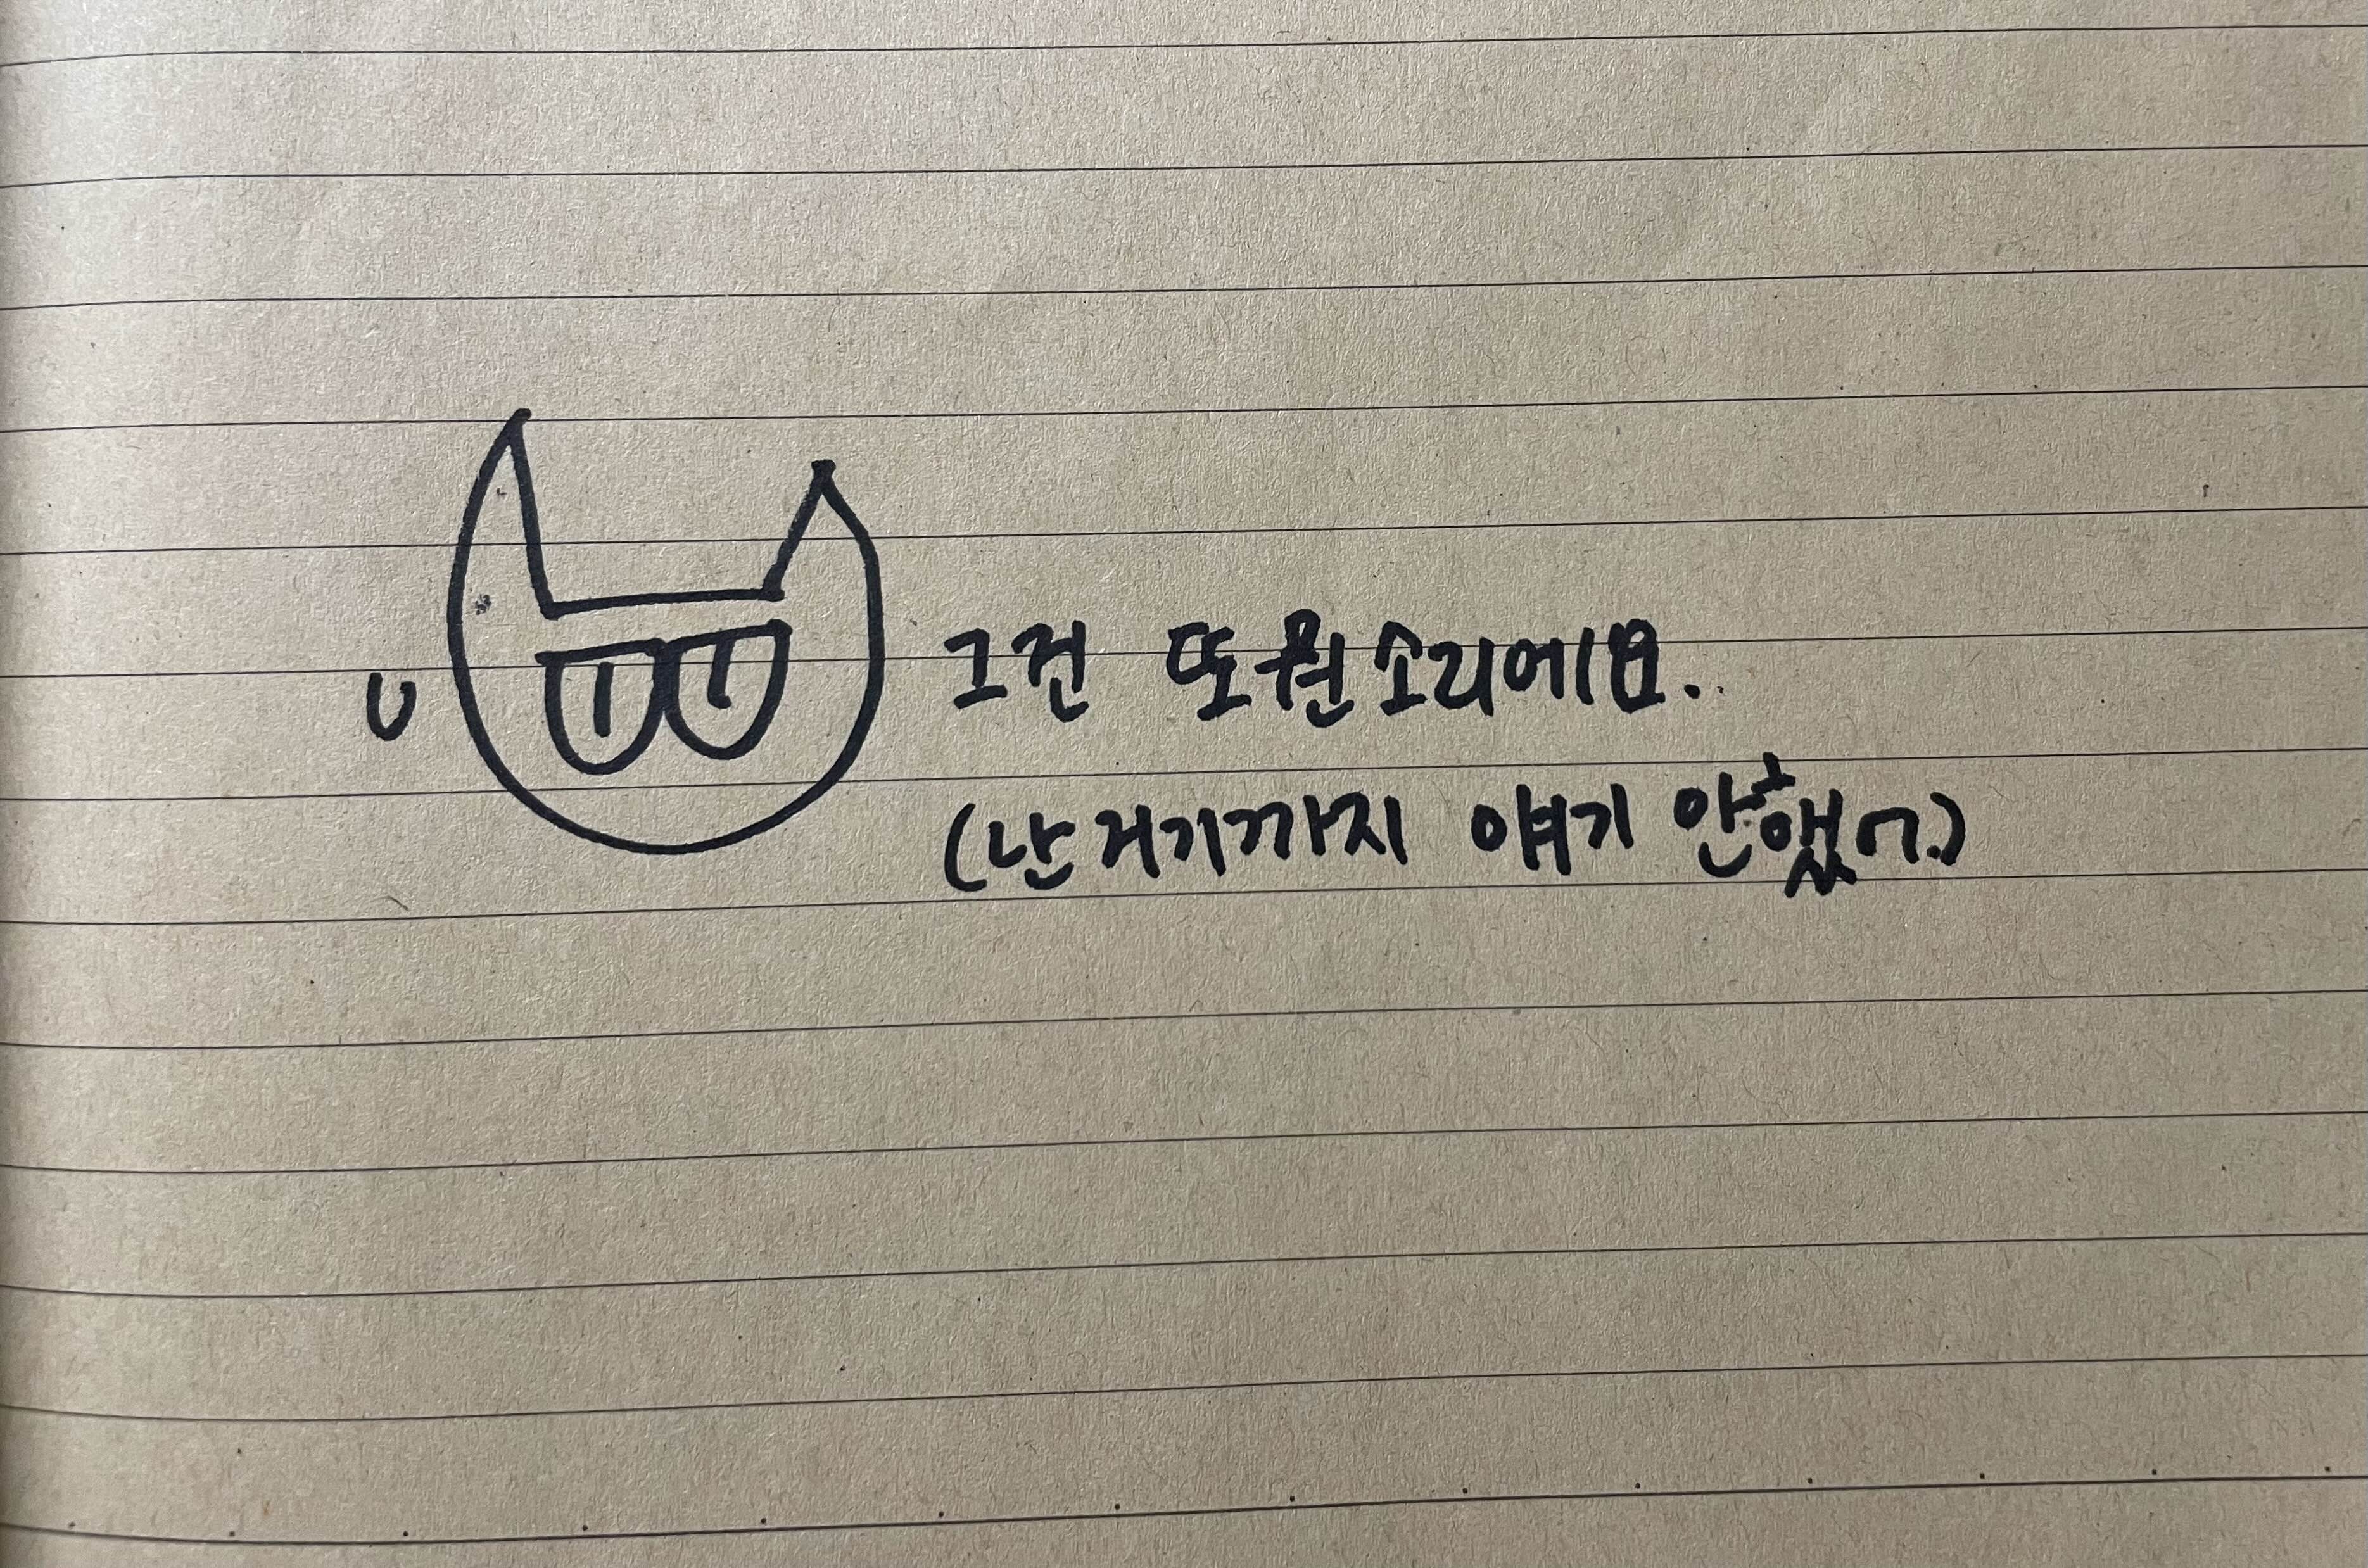 그건 또 뭔소리에요.
(난 거기까지 얘기 안했ㄱ.)